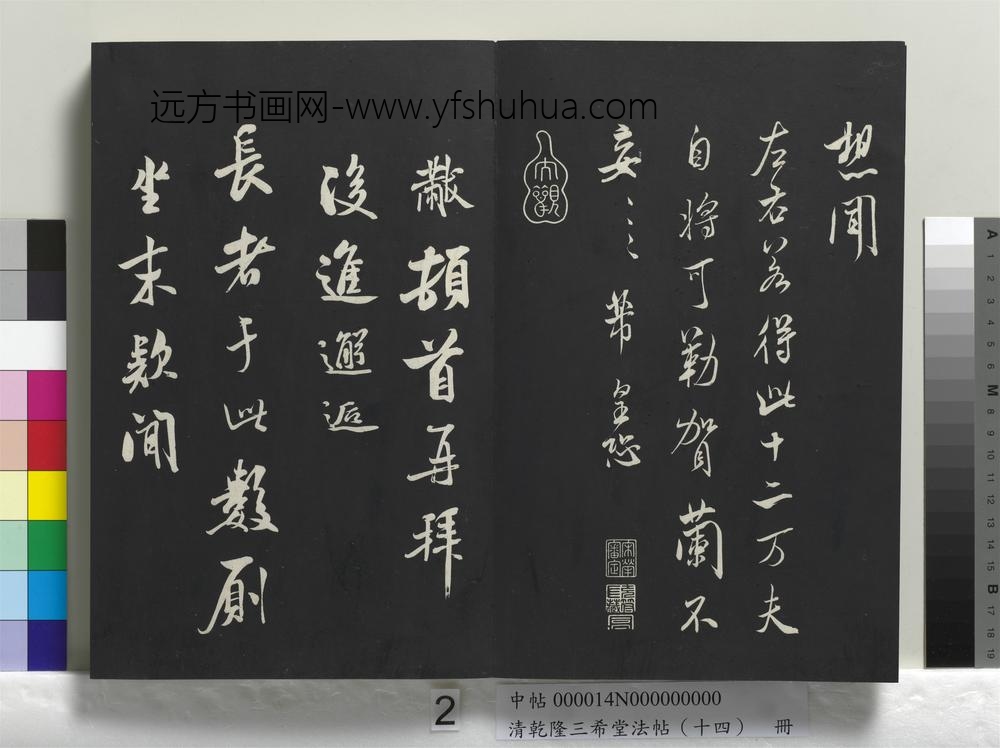 远方书画网-www.yfshuhua.com
想聞
左右若得此十二万夫
自將可勒賀蘭不
妄〻〻芾皇恐
大觀
宋犖
審定
黻頓首再拜
後進邂逅
長者于此數厠
坐末款聞
2
中帖 000014N000000000
清乾隆三希堂法帖（十四） 冊
A
1
2
3
4
5
6
M
8
9
10
11
12
13
14
15
B
17
18
19